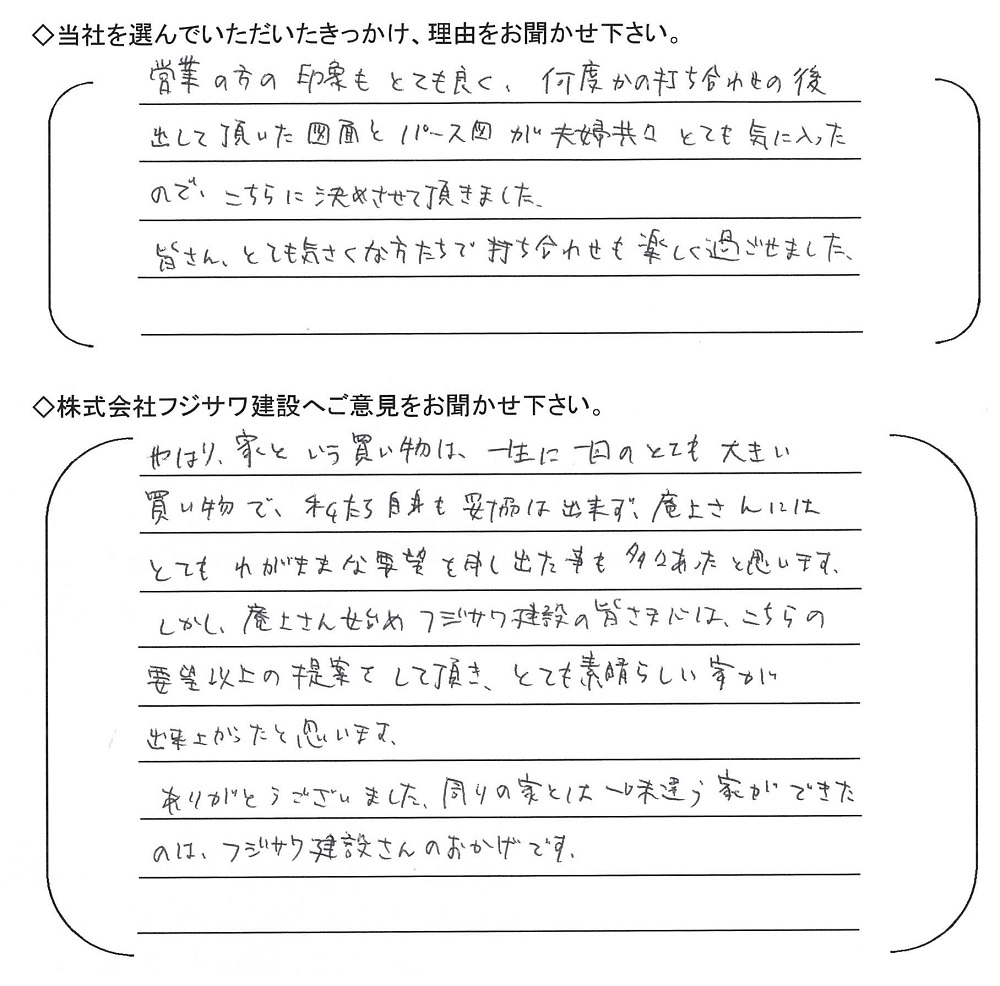 ◇当社を選んでいただいたきっかけ、理由をお聞かせ下さい。
営業の方の印象もとても良く、何度かの打ち合わせの後
出して頂いた図面とパース図が夫婦共々とても気に入った
ので、こちらに決めさせて頂きました。
皆さん、とても気さくな方たちで打ち合わせも楽しく過ごせました。
◇株式会社フジサワ建設へご意見をお聞かせ下さい。
やはり、家という買い物は、一生に一回のとても大きい
買い物で、私たち自身も妥協は出来ず、庵上さんには
とてもわがままな要望を申し出た事も多々あったと思います。
しかし、庵上さん始めフジサワ建設の皆さまには、こちらの
要望以上の提案をして頂き、とても素晴らしい家が
出来上がったと思います。
ありがとうございました。周りの家とは一味違う家ができた
のは、フジサワ建設さんのおかげです。